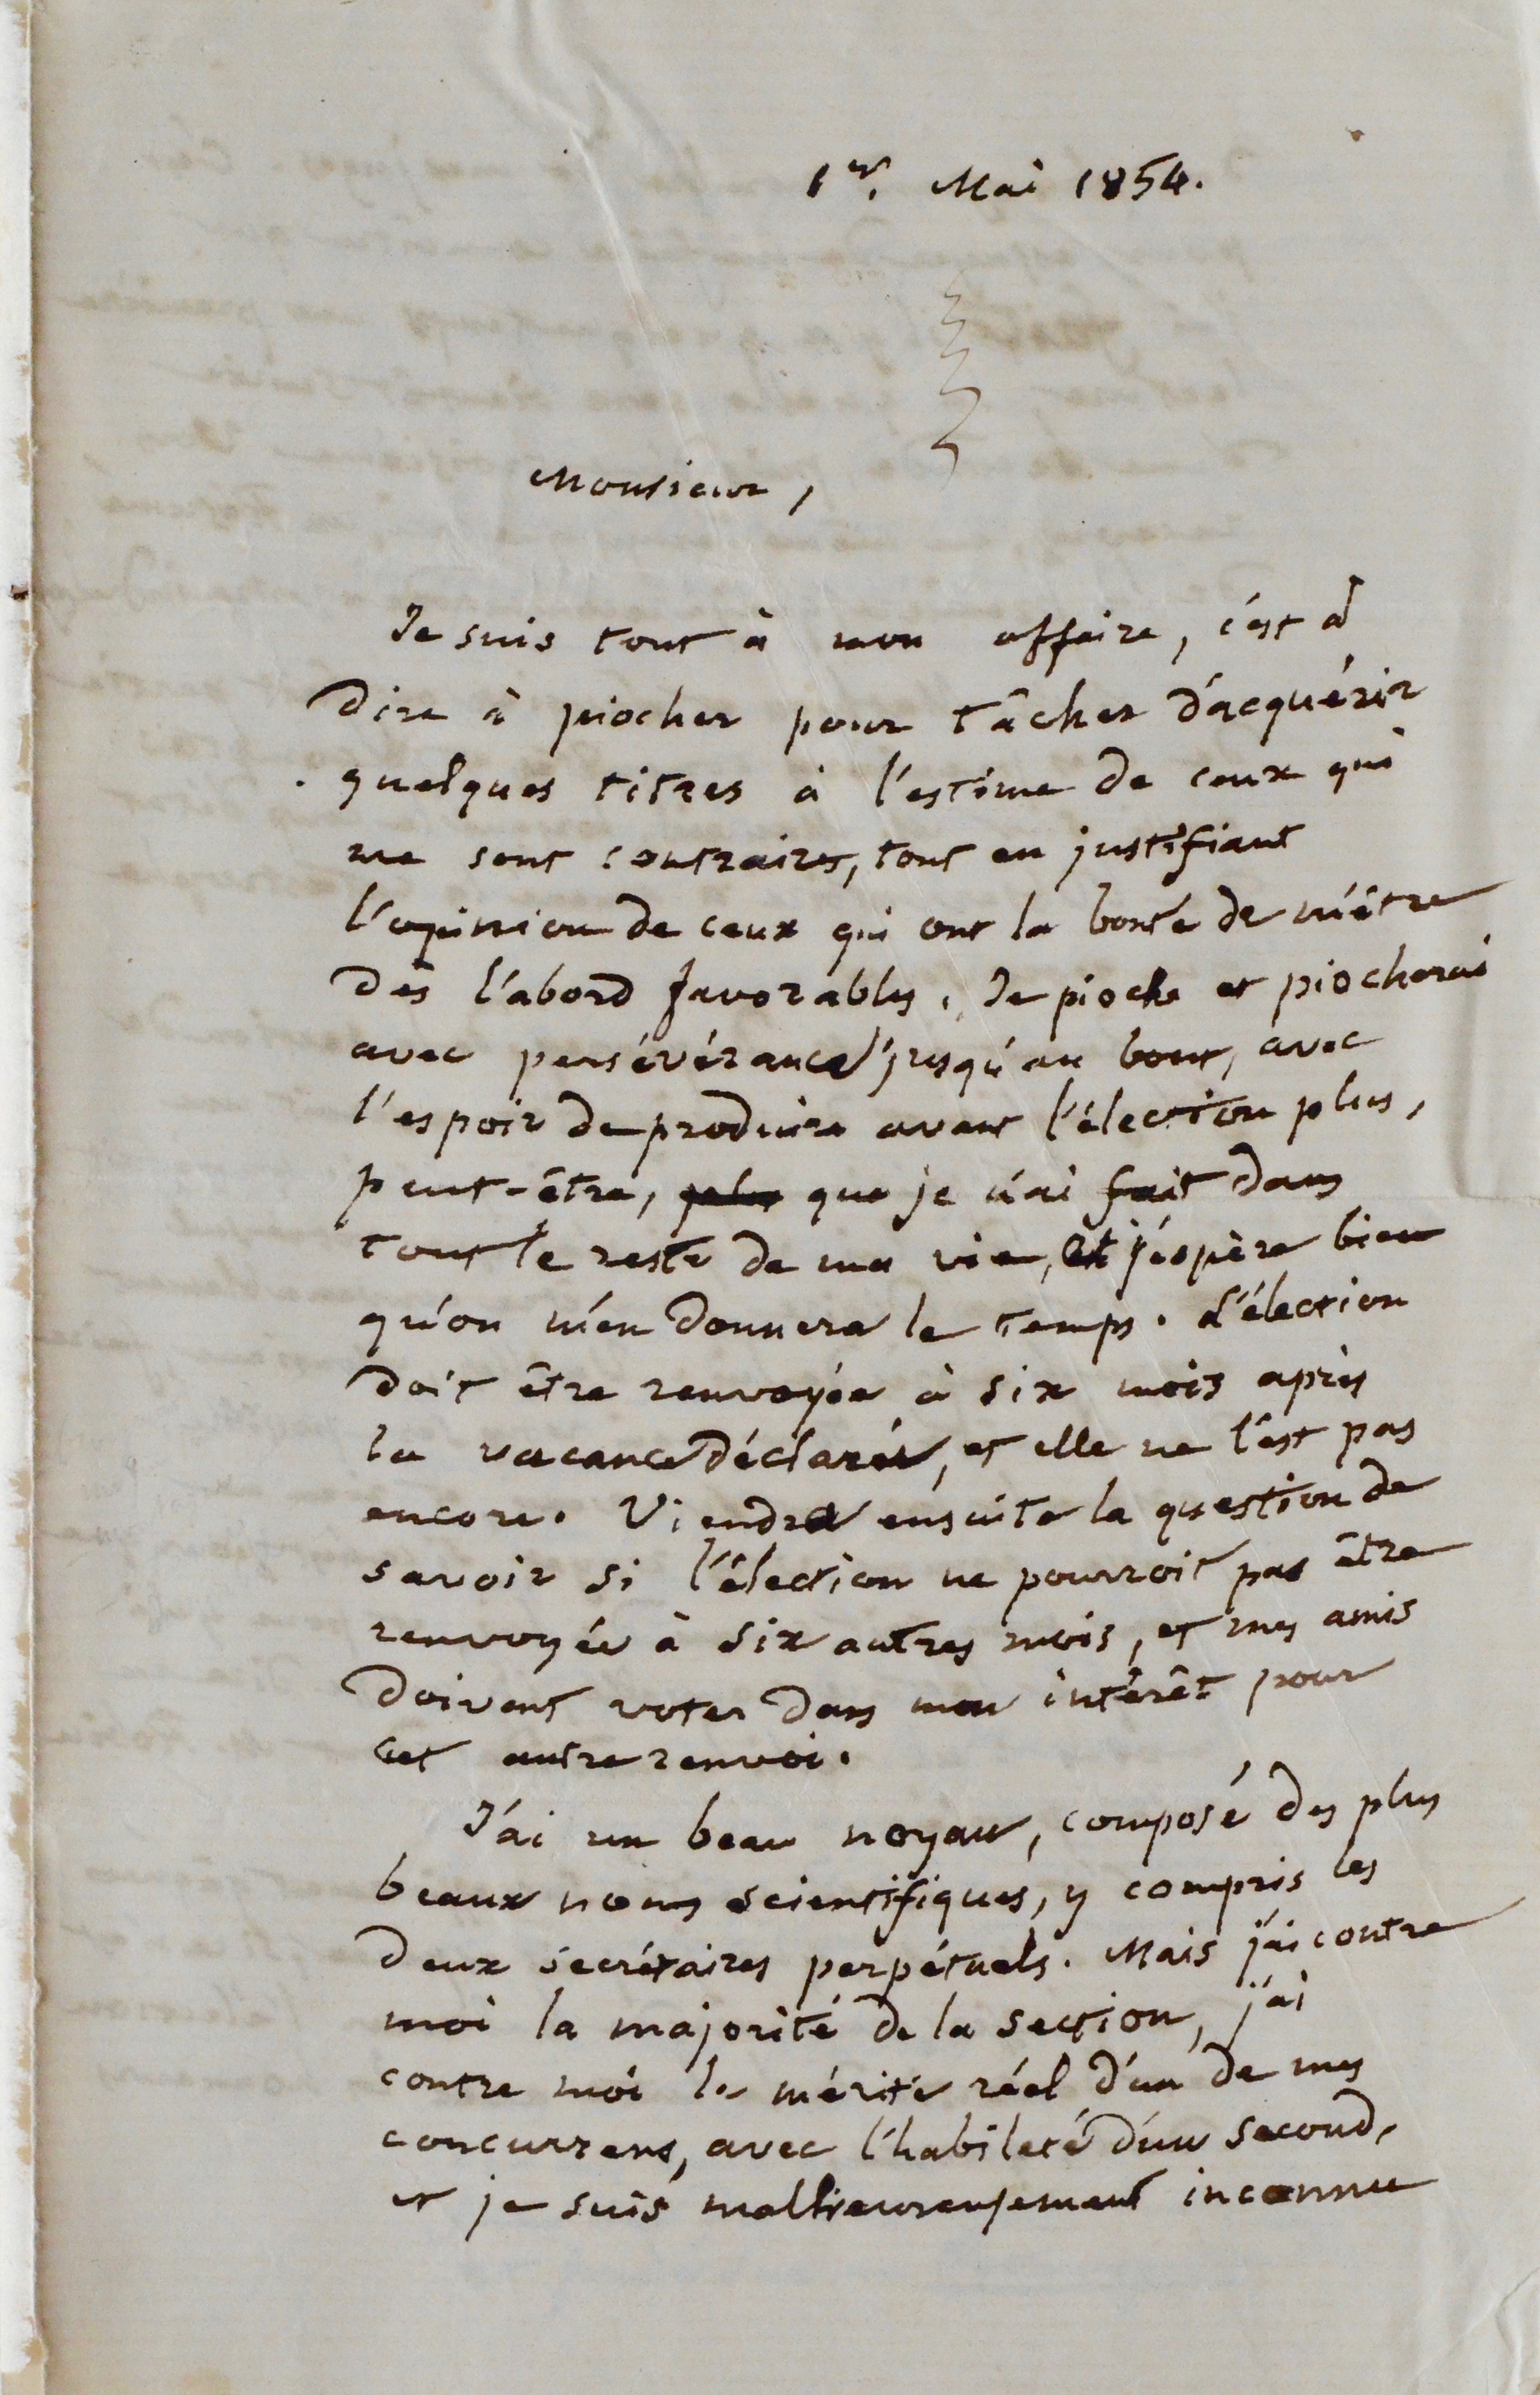 1er. Mai 1854.
Monsieur,
Je suis tout à mon affaire, c'est à
dire à piocher pour tâcher d'acquérir
quelques titres à l'estime de ceux qui
me sont contraires, tout en justifiant
l'opinion de ceux qui ont la bonté de m'être
dès l'abord favorables. Je pioche et piocherai
avec persévérance jusqu'au bout, avec
l'espoir de produire avant l'élection plus,
peut-être, plus que je n'ai fait dans
tout le reste de ma vie, et j'espère bien
qu'on m'en donnera le temps. L'élection
doit être renvoyée à six mois après
la vacance déclarée, et elle ne l'est pas
encore. Viendra ensuite la question de
savoir si l'élection ne pourroit pas être
renvoyée à six autres mois, et mes amis
doivent voter dans mon intérêt pour
cet autre renvoi.
J'ai un beau noyau, composé des plus
beaux noms scientifiques, y compris les
deux secrétaires perpétuels. Mais j'ai contre
moi la majorité de la section, j'ai
contre moi le mérite réel d'un de mes
concurrens, avec l'habileté d'un second,
et je suis malheureusement inconnu